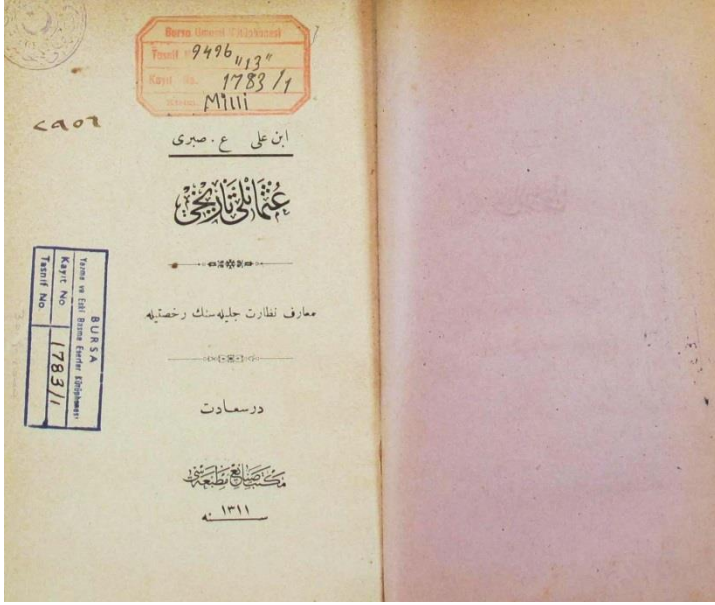 Bursa Umumi Kütüphanesi
Tasnif No. 9496 "13"
Kayıt No. 1783/1
Milli
٢٩٥٦
ابن على ع. صبرى
عثمانلى تاريخى
معارف نظارت جليله سنك رخصتيله
درسعادت
مكتب صنايع مطبعه سى
سنه ١٣١١
BURSA
Yazma ve Eski Basma Eserler Kütüphanesi
Kayıt No 1783/1
Tasnif No.